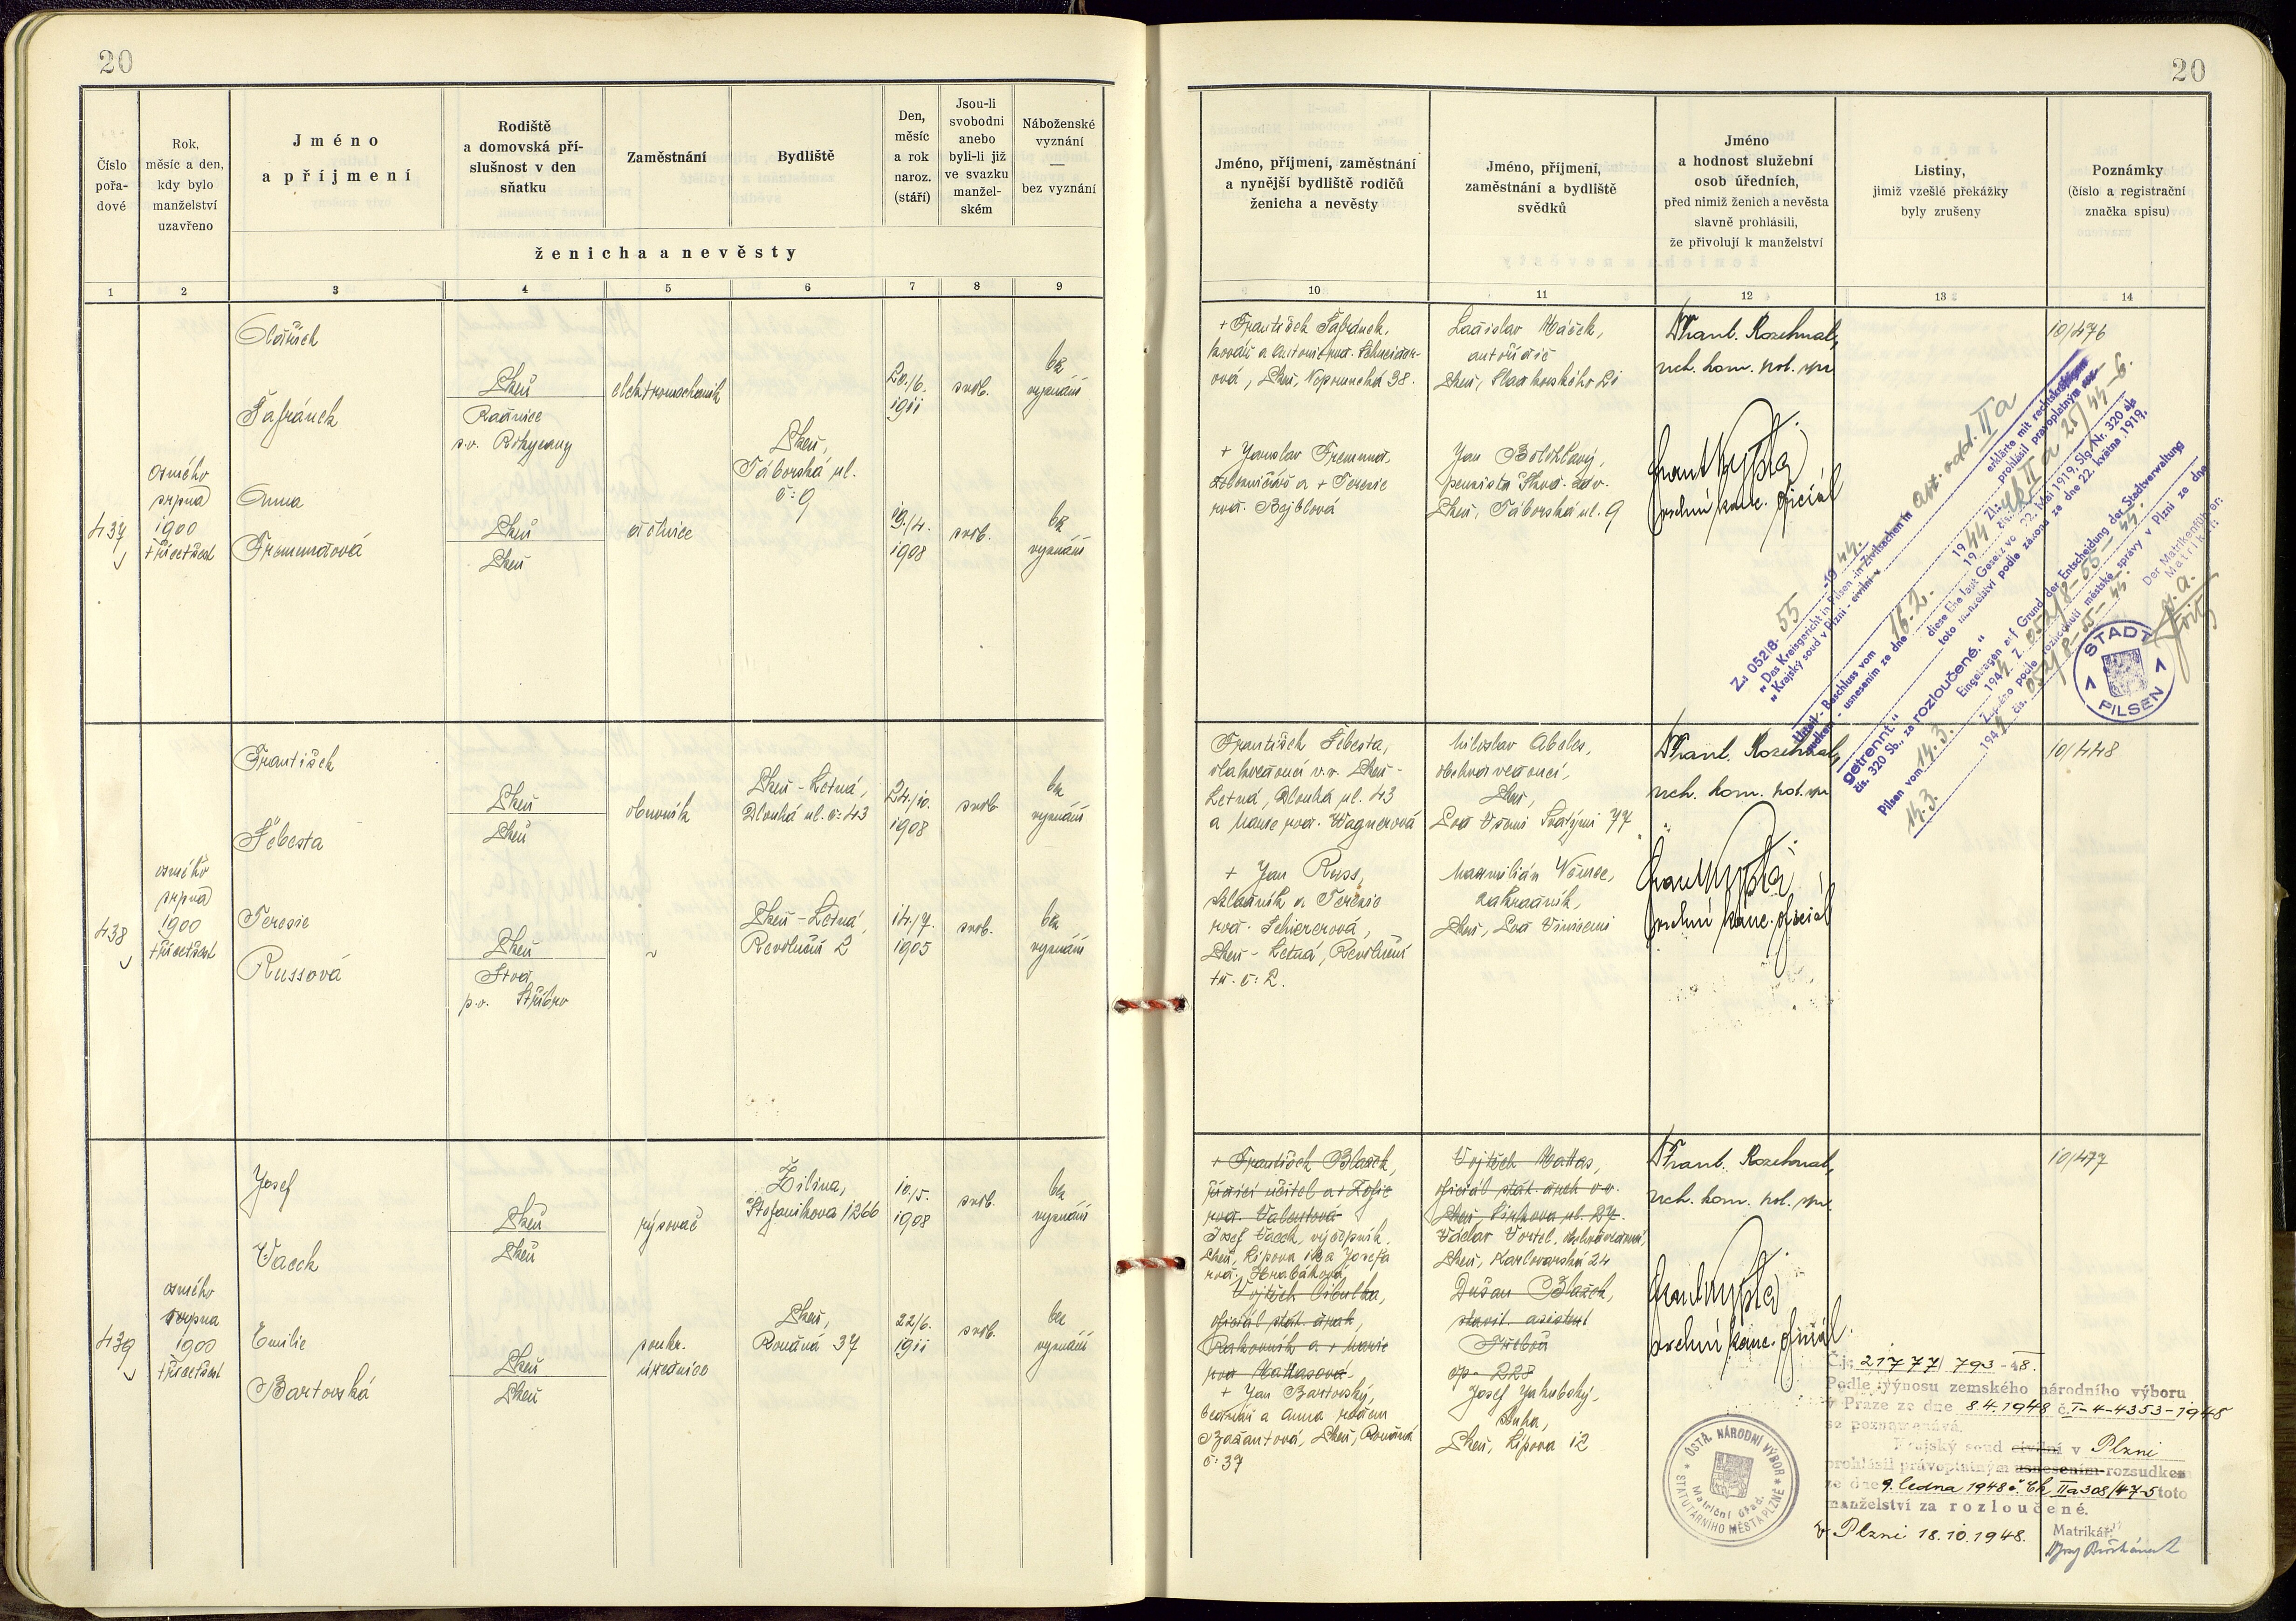 20
20
Číslo
pořa-
dové
Rok,
měsíc a den,
kdy bylo
manželství
uzavřeno
Jméno
a příjmení
Rodiště
a domovská pří-
slušnost v den
sňatku
Zaměstnání
Bydliště
Den,
měsíc
a rok
naroz.
(stáří)
Jsou-li
svobodni
anebo
byli-li již
ve svazku
manžel-
ském
Náboženské
vyznání
—
bez vyznání
ženicha a nevěsty
1 2 3 4 5 6 7 8 9
Jméno, příjmení, zaměstnání
a nynější bydliště rodičů
ženicha a nevěsty
Jméno, příjmení,
zaměstnání a bydliště
svědků
Jméno
a hodnost služební
osob úředních,
před nimiž ženich a nevěsta
slavně prohlásili,
že přivolují k manželství
Listiny,
jimiž vzešlé překážky
byly zrušeny
Poznámky
(číslo a registrační
značka spisu)
10 11 12 13 14
437
osmého
srpna
1900
třicetšest
Oldřich
Šafránek
Plzeň
Radnice
p.o. Rokycany
elektromechanik
Plzeň,
Táborská ul.
č: 9
20./6.
1911
svob.
bez
vyznání
Anna
Fremundová
Plzeň
Plzeň
19./4.
1908
svob.
bez
vyznání
+ František Šafránek,
kovář a Antonie roz. Schneider-
ová, Plzeň, Nepomucká 38.
+ Jaroslav Fremund,
a + Terezie
roz. Bejblová
Ladislav Háček,
autořidič
Jan Bolehlavý,
Plzeň, Táborská ul. 9
Frant. Rozehnal,
10/476
Z.: 0521/8- 55 -1944.
„Das Kreisgericht in Pilsen -in Zivilsachen in abt. odd. IIa erklärte mit rechtskräftigem
„Krajský soud v Plzni - civilní v prohlásil pravoplatným roz-
Urteil - Beschluss vom 16.2. 1944
sudkem - usnesením ze dne 19
diese Ehe laut Gesetz vom 22. Mai 1919, Slg. Nr. 320 als
toto manželství podle zákona ze dne 22. května 1919,
„getrennt.“
čís. 320 Sb., za „rozloučené.“
Eingetragen auf Grund der Entscheidung der Stadtverwaltung
Pilsen vom 14.3. 1944 Z. 0521/8-55-44.
Zapsáno podle rozhodnutí městské správy v Plzni ze dne
14.3. 1944 čís. 0521/8-55-44.
Der Matrikenführer:
Matrikář:
STADT
1 1
PILSEN
438
osmého
srpna
1900
třicetšest
František
Šebesta
Plzeň
Plzeň
obuvník
Plzeň - Letná,
Dlouhá ul. č: 43
24./10.
1908
svob.
bez
vyznání
Terezie
Russová
Plzeň
p.o. Stříbro
~
Plzeň - Letná,
Revoluční 2
14./7.
1905
svob.
bez
vyznání
František Šebesta,
vlakvedoucí v.v. Plzeň -
Letná, Dlouhá ul. 43
a Marie roz. Wagnerová
+ Jan Russ,
skladník a Terezie
roz. Schiererová,
Plzeň - Letná, Revoluční
tř. č: 2.
Miloslav Abeles,
obchodvedoucí,
Plzeň,
Pod Všemi Svatými 77
Maxmilián Němec,
zahradník,
Plzeň, Pod Vinicemi
Frant. Rozehnal,
10/448
439
osmého
srpna
1900
třicetšest
Josef
Vacek
Plzeň
Plzeň
rýsovač
Žilina,
Štefanikova 1266
10./5.
1908
svob.
bez
vyznání
Emilie
Bartovská
Plzeň
Plzeň
soukr.
úřednice
Plzeň,
Koučná 37
22/6.
1911
svob.
bez
vyznání
+ František Blažek,
řídící učitel a + Žofie
roz. Valentová
Josef Vacek, výčepník,
Plzeň, Lipová 12 a Josefa
roz. Hrabáková
Vojtěch Cibulka,
oficiál stát. drah,
Rakovník a + Marie
roz. Mattasová
+ Jan Bartovský,
bednář a Anna rozen
Bažantová, Plzeň, Koučná
č: 37
Vojtěch Mattas,
oficiál stát. drah v.v.
Plzeň, Lipova ul. 27.
Václav Vostel, obchodvedoucí,
Plzeň, Karlovarská 24
Dušan Blažek,
stavit. asistent
Třeboň
čp. 228
Josef Jakubský,
sluha,
Plzeň, Lipova 12
Frant. Rozehnal,
10/477
Č.j.: 21777/793-48.
Podle výnosu zemského národního výboru
v Praze ze dne 8.4.1948 č. I-4-4353-1948
se poznamenává.
Krajský soud civilní v Plzni
prohlásil právoplatným usnesením-rozsudkem
ze dne 9. ledna 1948 č. Ck IIa 308/47-5 toto
manželství za rozloučené.
V Plzni 18.10.1948.
Matrikář:
ÚSTŘ. NÁRODNÍ VÝBOR
STATUTÁRNÍHO MĚSTA PLZNĚ
Matriční úřad.